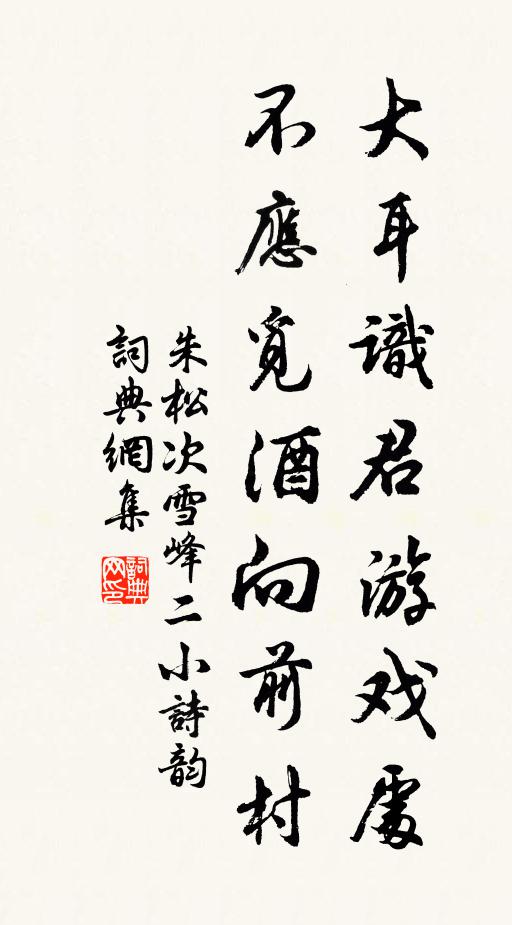 大耳識君游戏處
不應覓酒向前村
朱松次雪峰二小詩韵
詞典網集
詞典网印